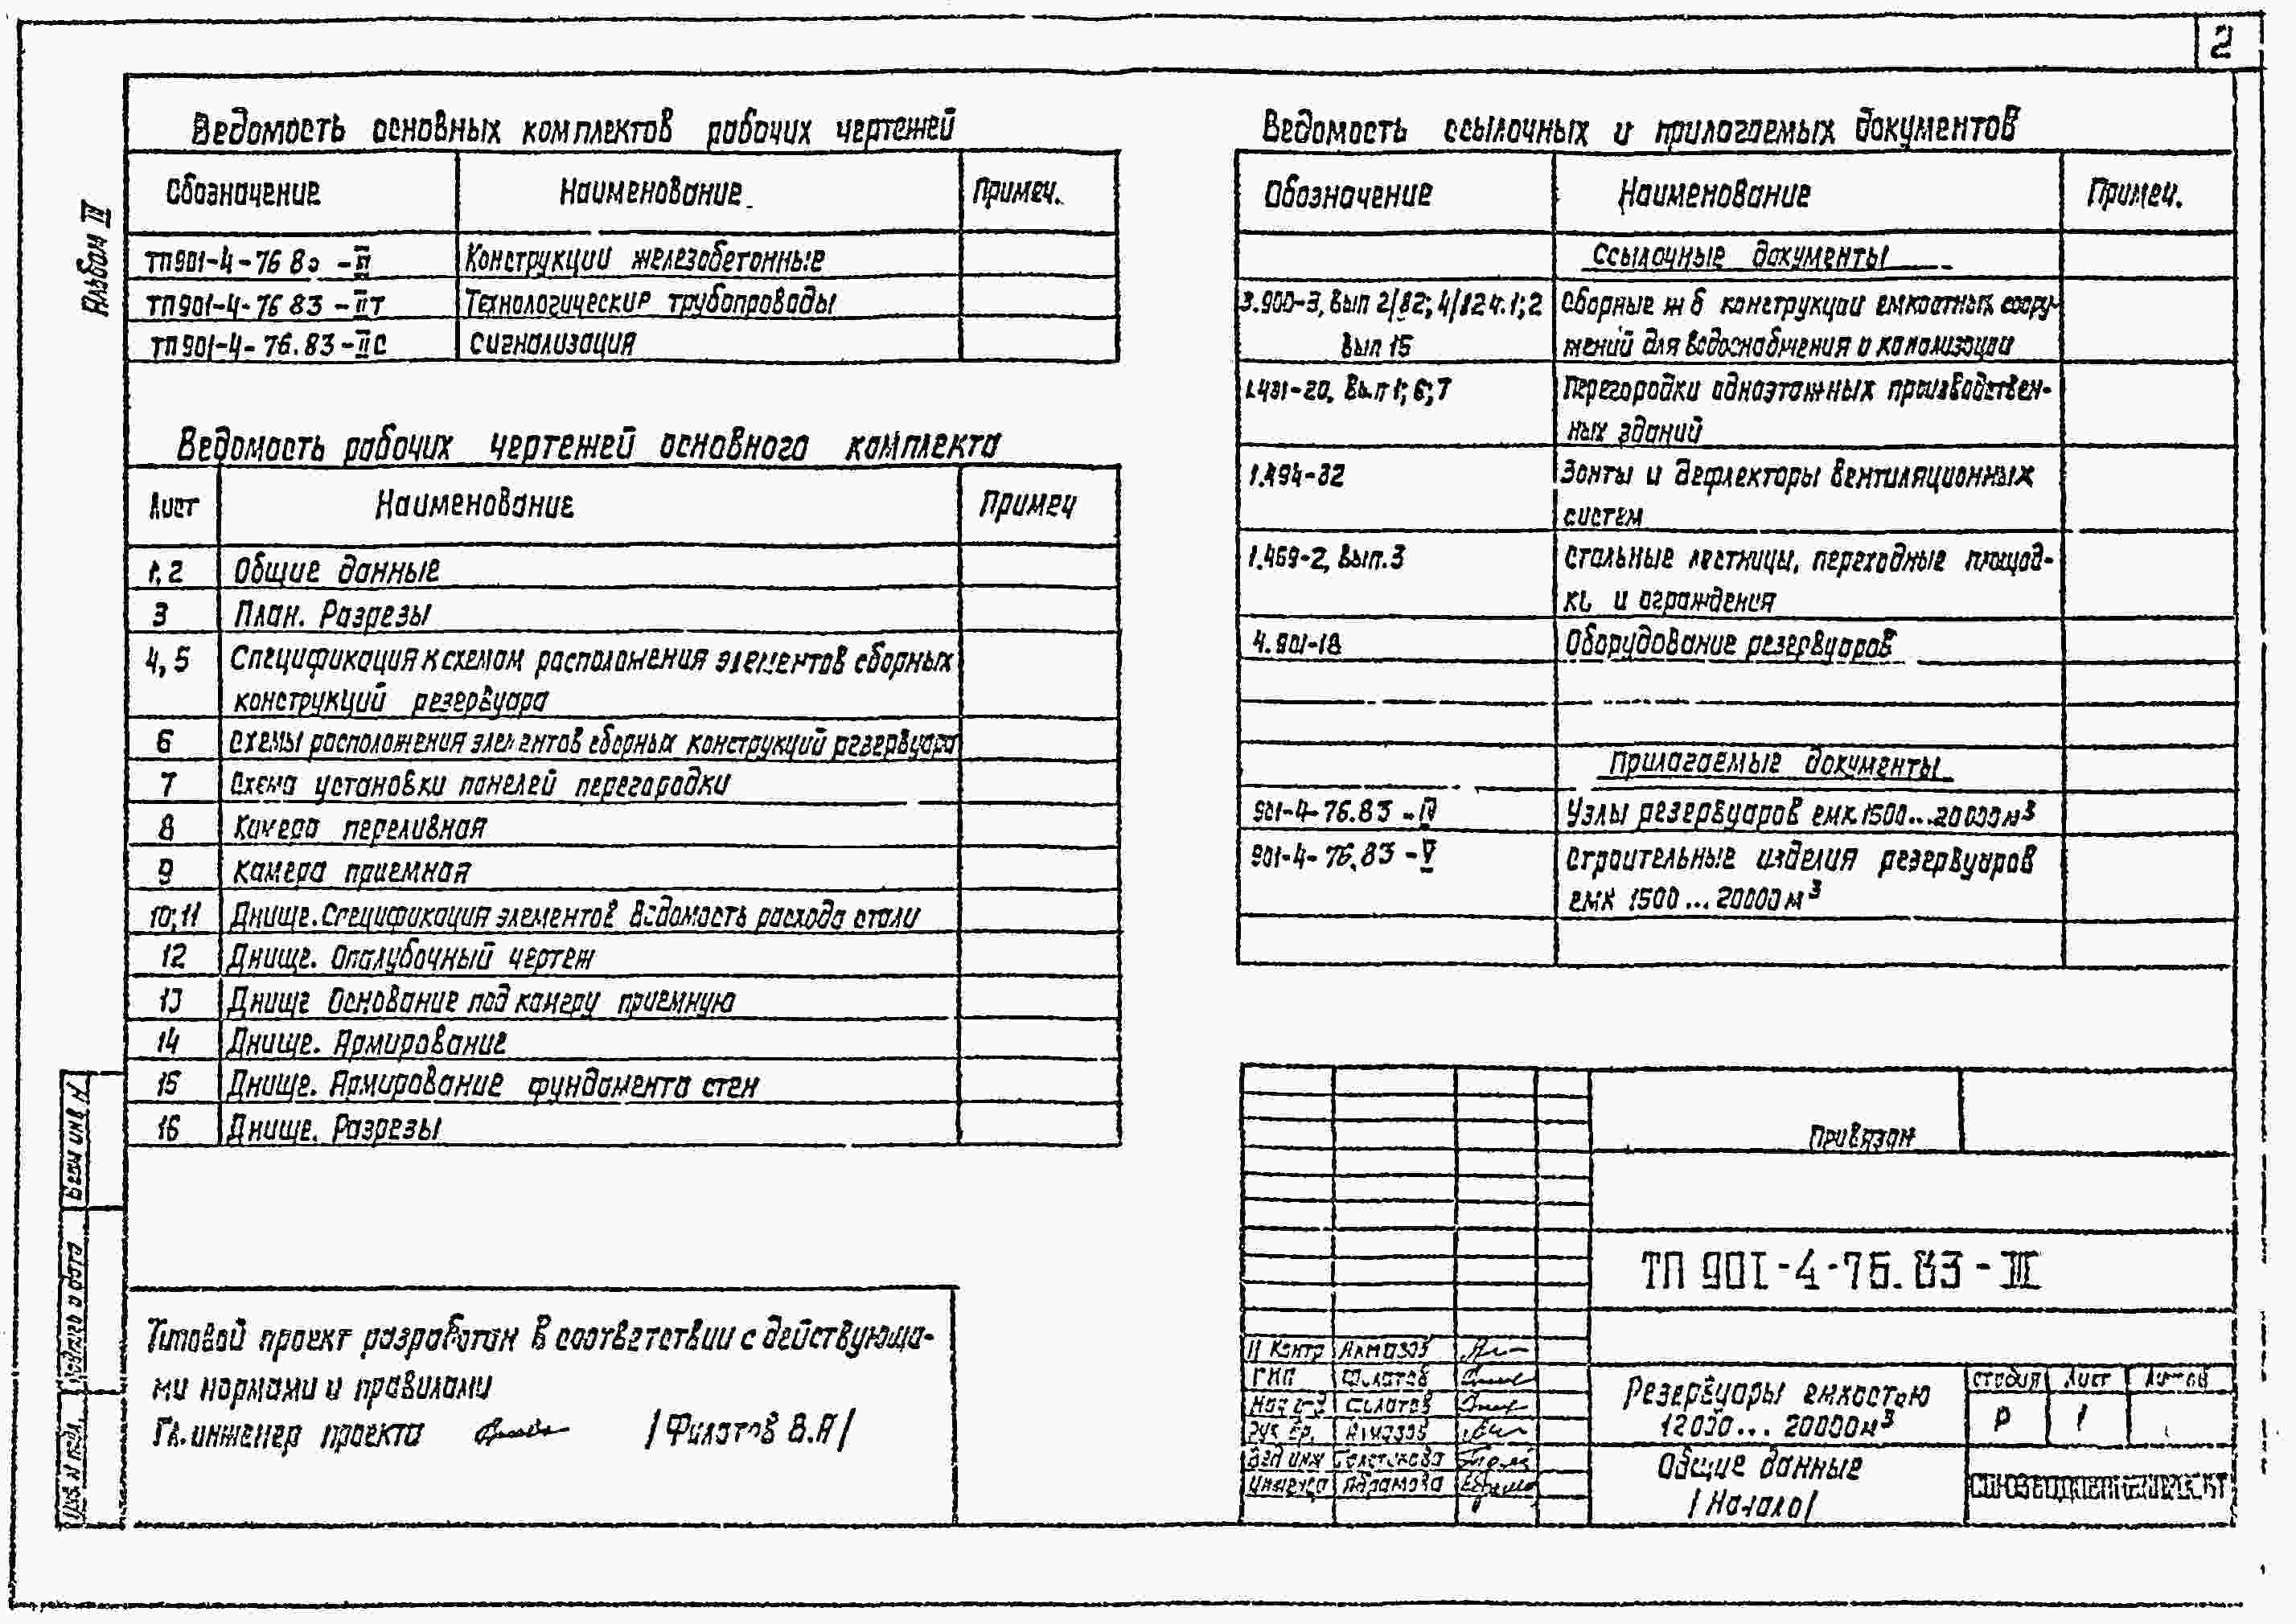 2
Альбом III
Ведомость основных комплектов рабочих чертежей
Обозначение Наименование Примеч.
ТП 901-4-76 83 -III Конструкции железобетонные
ТП 901-4-76 83 -IIТ Технологические трубопроводы
ТП 901-4-76.83-IIС Сигнализация
Ведомость рабочих чертежей основного комплекта
Лист Наименование Примеч
1,2 Общие данные
3 План. Разрезы
4,5 Спецификация к схемам расположения элементов сборных
конструкций резервуара
6 Схемы расположения элементов сборных конструкций резервуара
7 Схема установки панелей перегородки
8 Камера переливная
9 Камера приемная
10;11 Днище. Спецификация элементов Ведомость расхода стали
12 Днище. Опалубочный чертеж
13 Днище Основание под камеру приемную
14 Днище. Армирование
15 Днище. Армирование фундамента стен
16 Днище. Разрезы
Типовой проект разработан в соответствии с действующа-
ми нормами и правилами
Гл. инженер проекта /Филатов В.А/
Ведомость ссылочных и прилагаемых документов
Обозначение Наименование Примеч.
Ссылочные документы
3.900-3, вып 2/82; 4/82 ч.1;2 Сборные ж б конструкции емкостных соору-
Вып 15 жений для водоснабжения и канализации
1.431-20, Вып 1; 6; 7 Перегородки одноэтажных производствен-
ных зданий
1.494-32 Зонты и дефлекторы вентиляционных
систем
1.459-2, вып.3 Стальные лестницы, переходные площад-
ки и ограждения
4.901-18 Оборудование резервуаров
Прилагаемые документы
901-4-76.83 -IV Узлы резервуаров емк.1500...20000м³
901-4-76.83 -V Строительные изделия резервуаров
емк 1500...20000м³
Привязан
ТП 901-4-76.83-III
Н Контр Алмазов
ГИП Филатов
Нач о-д Филатов
Рук бр. Алмазов
Вед инж
Инженер Абрамова
Резервуары емкостью
12000... 20000м³
Стадия Лист Листов
Р 1
Общие данные
/Начало/
Взам инв N
Подпись и дата
Инв. N подл.